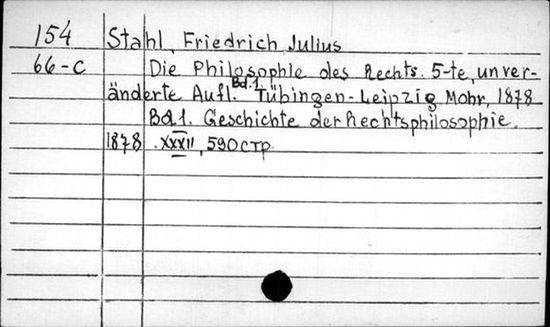 154 Stahl, Friedrich Julius
66-C Die Philosophie des Rechts. 5-te, unver-
änderte Aufl. Bd.1 Tübingen-Leipzig, Mohr, 1878
Bd 1. Geschichte der Rechtsphilosophie.
1878 . XXXII, 590 стр.